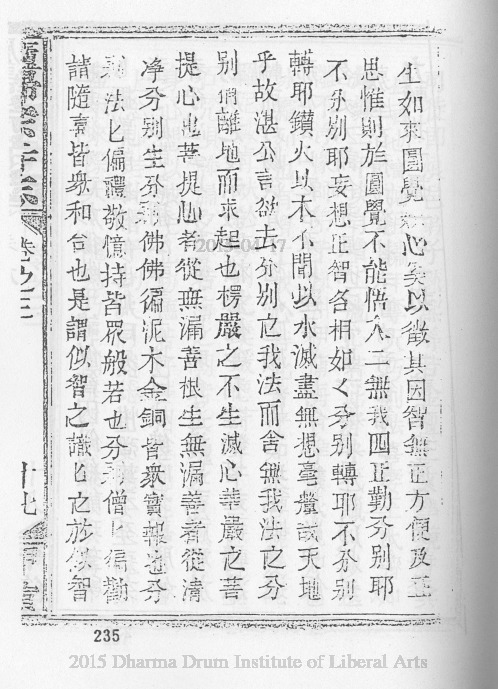 生如來圓覺 心矣以徵其因智無正方便及正
思惟則於圓覺不能悟入二無我四正勤分別耶
不分別耶妄想正智名相如く分別轉耶不分別
轉耶鑽火以木不聞以水滅盡無想毫釐 天地
乎故湛公言欲去分別 之我法而舍無我法之分
别 離地而求起也楞嚴之不生滅心華嚴之菩
提心也菩提心者從無漏善根生無漏善者從清
净分别生分别佛佛徧泥木金銅皆衆寶報也分
別法 偏禮敬憶持皆眾般若也分别僧 徧勸
請隨喜皆衆和合也是謂似智之識 之於似智
卷之三
十七
235
2015-04-17
2015 Dharma Drum Institute of Liberal Arts